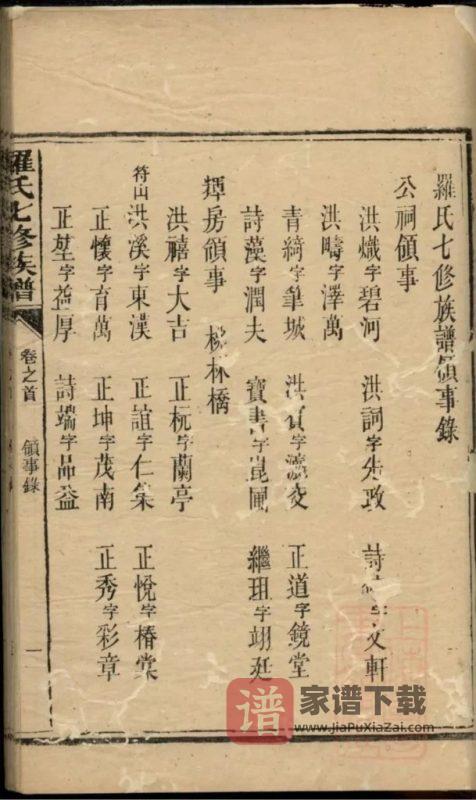 羅氏七修族譜領事錄
公祠領事
洪熾字碧河 洪詞字先政 詩 字文軒
洪疇字澤萬
青綺字聿城 洪賓字 交 正道字鏡堂
詩藻字潤夫 寶書字崑圃 繼珇字翊廷
領事 林橋
洪禧字大吉 正杬字蘭亭
符山洪溪字東漢 正誼字仁集 正悅字椿棠
正懷字育萬 正坤字茂南 正秀字彩章
正 字 厚 詩端字品益
羅氏七修族譜 卷之首 領事錄 一
譜
家谱下载
www.JiaPuXiaZai.com